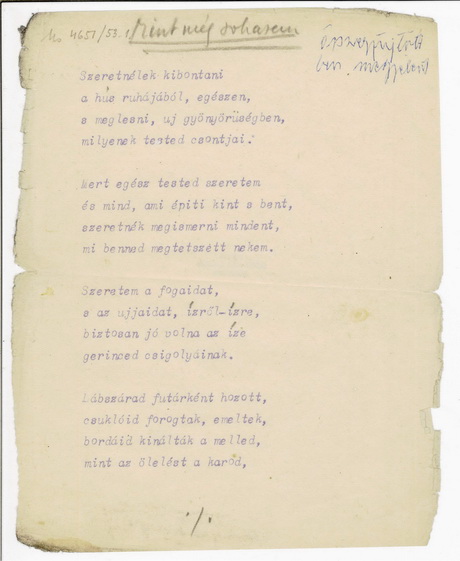 Ms 4651/53.
Mint még soharem
összegyűjtött
ben megjelent
Szeretnélek kibontani
a hús ruhájából, egészen,
s meglesni, uj gyönyörüségben,
milyenek tested csontjai.
Mert egész tested szeretem
és mind, ami épiti kint s bent,
szeretnék megismerni mindent,
mi benned megtetszett nekem.
Szeretem a fogaidat,
s az ujjaidat, ízről-ízre,
biztosan jó volna az íze
gerinced csigolyáinak.
Lábszárad futárként hozott,
csuklóid forogtak, emeltek,
bordáid kinálták a melled,
mint az ölelést a karod,
./.